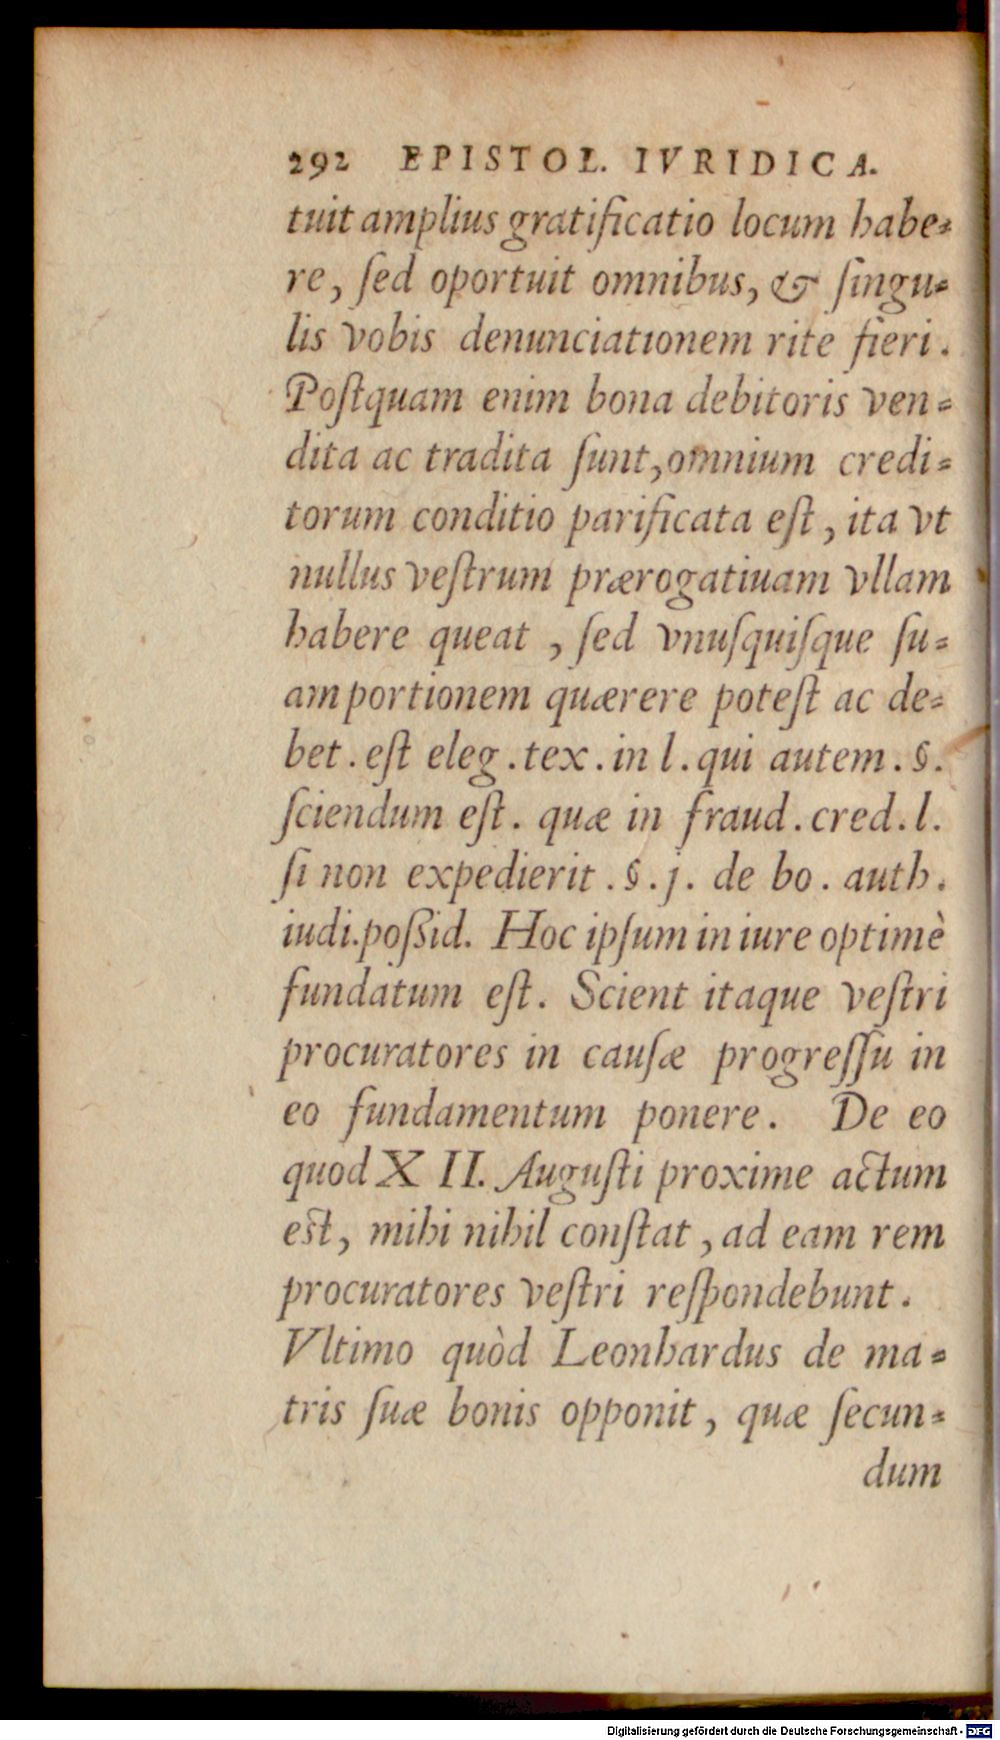 292 EPISTOL. IVRIDICA.
tuit amplius gratificatio locum habe-
re, ſed oportuit omnibus, & ſingu-
lis vobis denunciationem rite fieri.
Poſtquam enim bona debitoris ven-
dita ac tradita ſunt, omnium credi-
torum conditio parificata eſt, ita vt
nullus veſtrum prærogatiuam vllam
habere queat, ſed vnuſquiſque ſu-
am portionem quærere poteſt ac de-
bet. eſt eleg. tex. in l. qui autem. §.
ſciendum eſt. quæ in fraud. cred. l.
ſi non expedierit. §. j. de bo. auth.
iudi. poßid. Hoc ipſum in iure optimè
fundatum eſt. Scient itaque veſtri
procuratores in cauſæ progreſſu in
eo fundamentum ponere. De eo
quod XII. Auguſti proxime actum
est, mihi nihil conſtat, ad eam rem
procuratores veſtri reſpondebunt.
Vltimo quòd Leonhardus de ma-
tris ſuæ bonis opponit, quæ ſecun-
dum
Digitalisierung gefördert durch die Deutsche Forschungsgemeinschaft - DFG